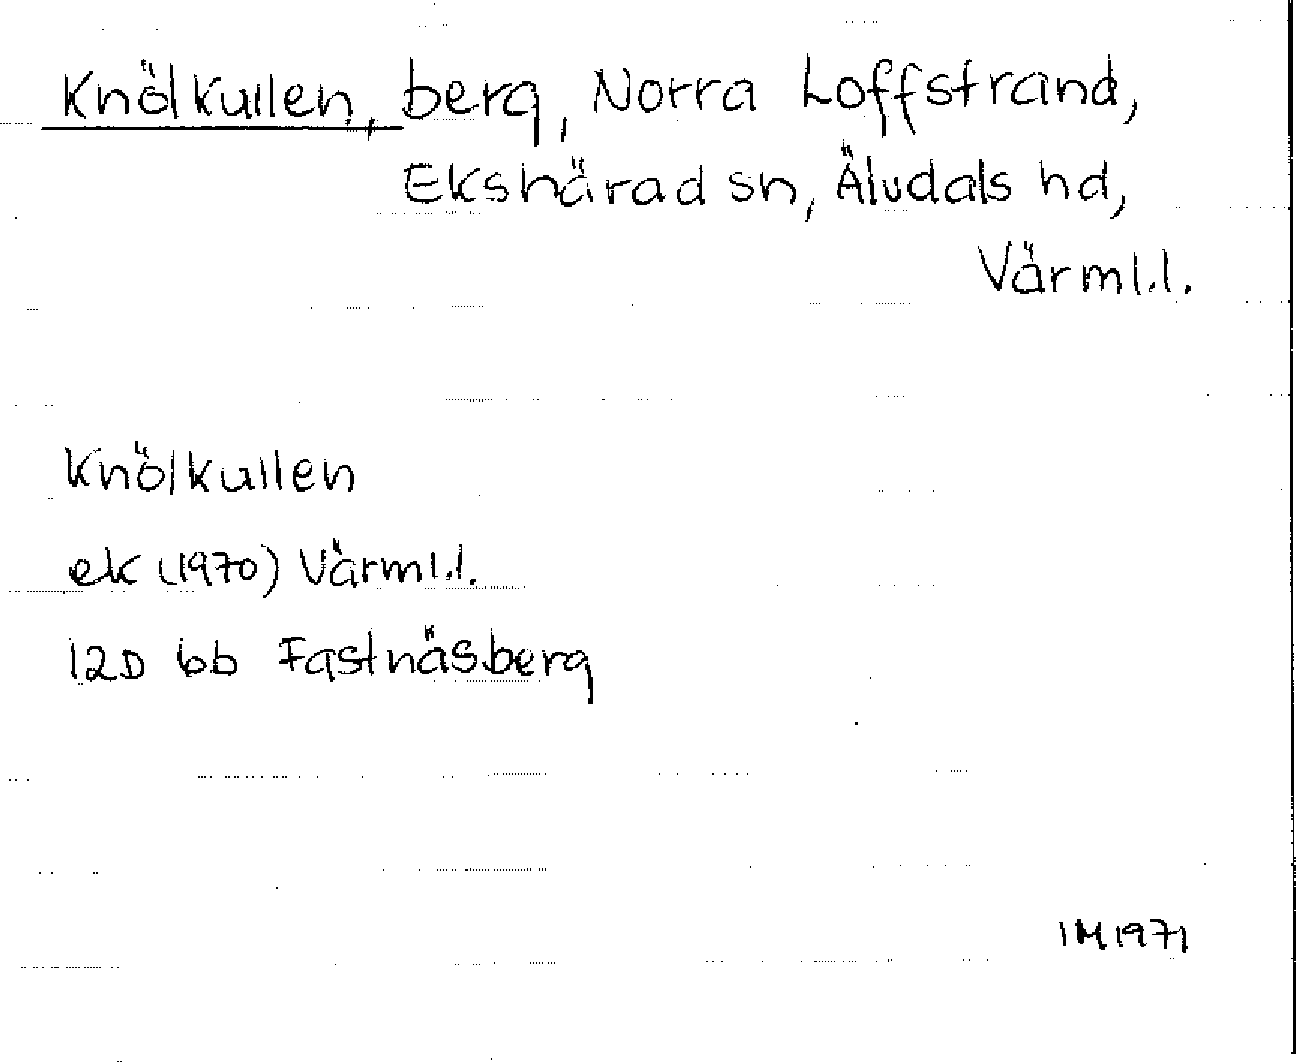 Knölkullen, berg, Norra Loffstrand,
Ekshärad sn, Älvdals hd,
Värml.l.
Knölkullen
ek (1970) Värml.l.
12D 6b Fastnäsberg
IM 1971